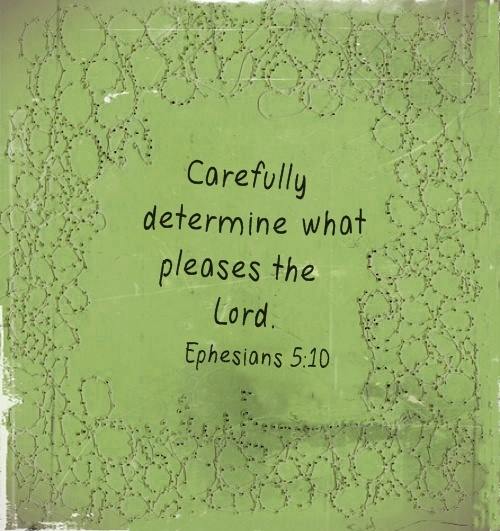 Carefully
determine what
pleases the
Lord.
Ephesians 5:10